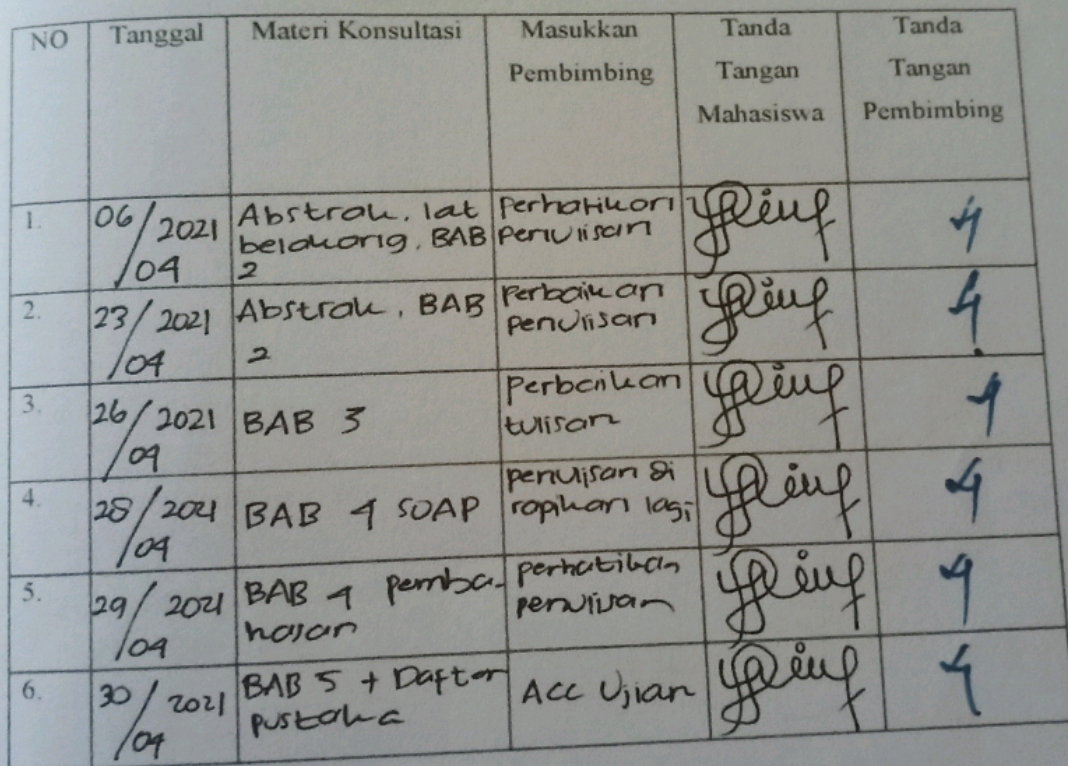 NO Tanggal Materi Konsultasi Masukkan Pembimbing Tanda Tangan Mahasiswa Tanda Tangan Pembimbing
1. 06/04/2021 Abstrak, lat belakang, BAB 2 Perhatikan penulisan
2. 23/04/2021 Abstrak, BAB 2 Perbaikan penulisan
3. 26/04/2021 BAB 3 Perbaikan tulisan
4. 28/04/2021 BAB 4 SOAP penulisan di rapikan lagi
5. 29/04/2021 BAB 4 pemba-hasan perhatikan penulisan
6. 30/04/2021 BAB 5 + Daftar pustaka Acc Ujian